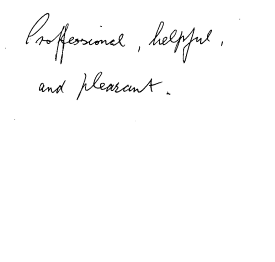 Proffessional, helpful,
and pleasant.